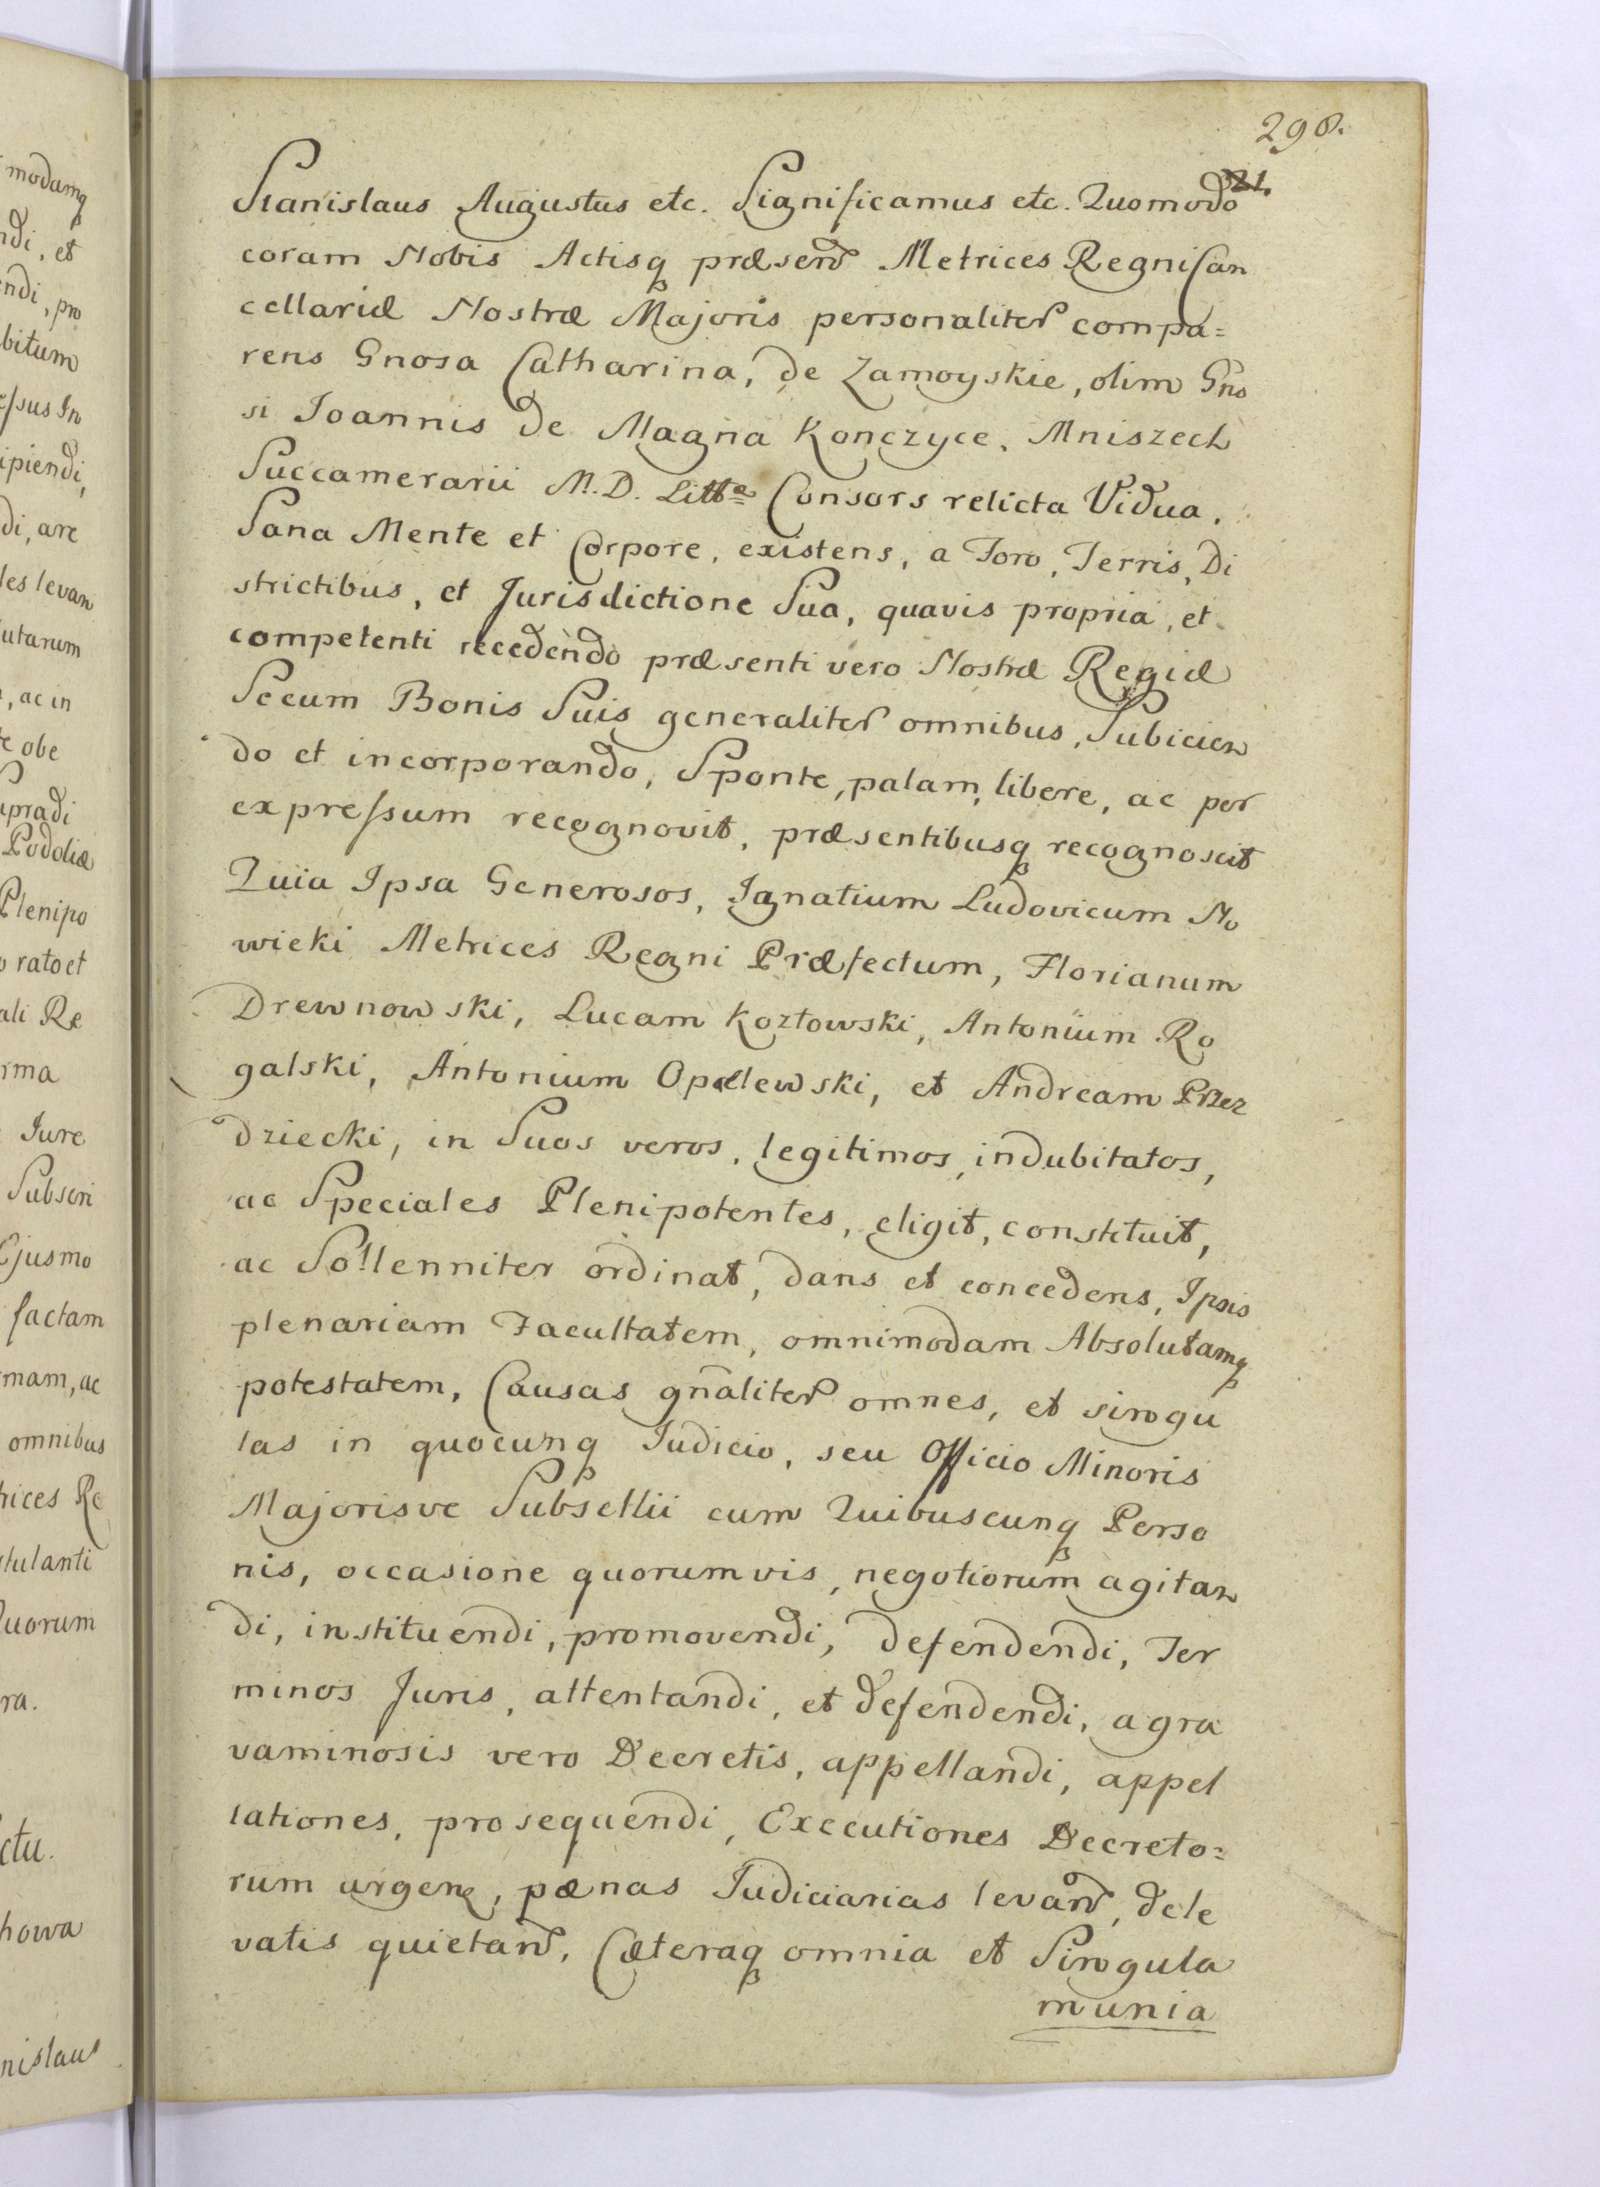 modamq
ndi, et
endi, pro
bitum
essus In
ipiendi,
di, are
les levan
utarum
, ac in
te obe
upradi
Podoliæ
Plenipo
o rato et
ali Re
rma
Jure
Subscri
Ejusmo
factam
mam, ac
omnibus
rices Re
stulanti
Quorum
ra.
ctu.
howa
nislaus
298.
21.
Stanislaus Augustus etc. Significamus etc. Quomodo
coram Nobis Actisq præsen Metrices Regni Can
cellariæ Nostræ Majoris personaliter compa=
rens Gnosa Catharina, de Zamoyskie, olim Gno
si Joannis de Magna Konczyce, Mniszech
Succamerarii M. D. Litt Consors relicta Vidua,
Sana Mente et Corpore, existens, a Foro, Terris, Di
strictibus, et Jurisdictione Sua, quavis propria, et
competenti recedendo præsenti vero Nostræ Regiæ
Secum Bonis Suis generaliter omnibus, Subicien
do et incorporando, Sponte, palam, libere, ac per
expressum recognovit, præsentibusq recognoscit
Quia Ipsa Generosos, Ignatium Ludovicum No
wicki Metrices Regni Præfectum, Florianum
Drewnowski, Lucam Kozłowski, Antonium Ro
galski, Antonium Opælewski, et Andream Przez
dziecki, in Suos veros, legitimos, indubitatos,
ac Speciales Plenipotentes, eligit, constituit,
ac Sollenniter ordinat, dans et concedens, Ipsis
plenariam Facultatem, omnimodam Absolutamq
potestatem, Causas gnaliter omnes, et singu
las in quocunq Judicio, seu Officio Minoris
Majorisve Subsellii cum Quibuscunq Perso
nis, occasione quorumvis, negotiorum agitan
di, instituendi, promovendi, defendendi, Ter
minos Juris, attentandi, et defendendi, a gra
vaminosis vero Decretis, appellandi, appel
lationes, prosequendi, Executiones Decreto=
rum urgen, pœnas Judiciarias levan, de le
vatis quietan, Cæteraq omnia et Singula
munia